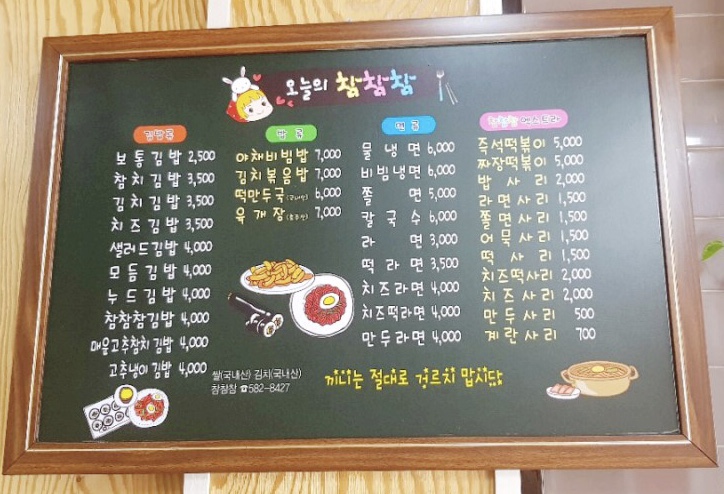 오늘의 참참참
김밥류
보통김밥 2,500
참치김밥 3,500
김치김밥 3,500
치즈김밥 3,500
샐러드김밥 4,000
모듬김밥 4,000
누드김밥 4,000
참참참김밥 4,000
매운고추참치김밥 4,000
고추냉이김밥 4,000
밥류
야채비빔밥 7,000
김치볶음밥 7,000
떡만두국(국내산) 6,000
육개장 7,000
면류
물냉면 6,000
비빔냉면 6,000
쫄면 5,000
칼국수 6,000
라면 3,000
떡라면 3,500
치즈라면 4,000
치즈떡라면 4,000
만두라면 4,000
참참참 엑스트라
즉석떡볶이 5,000
짜장떡볶이 5,000
밥사리 2,000
라면사리 1,500
쫄면사리 1,500
어묵사리 1,500
떡사리 1,500
치즈떡사리 2,000
치즈사리 2,000
만두사리 500
계란사리 700
쌀(국내산) 김치(국내산)
참참참 ☎582-8427
끼니는 절대로 거르치 맙시다